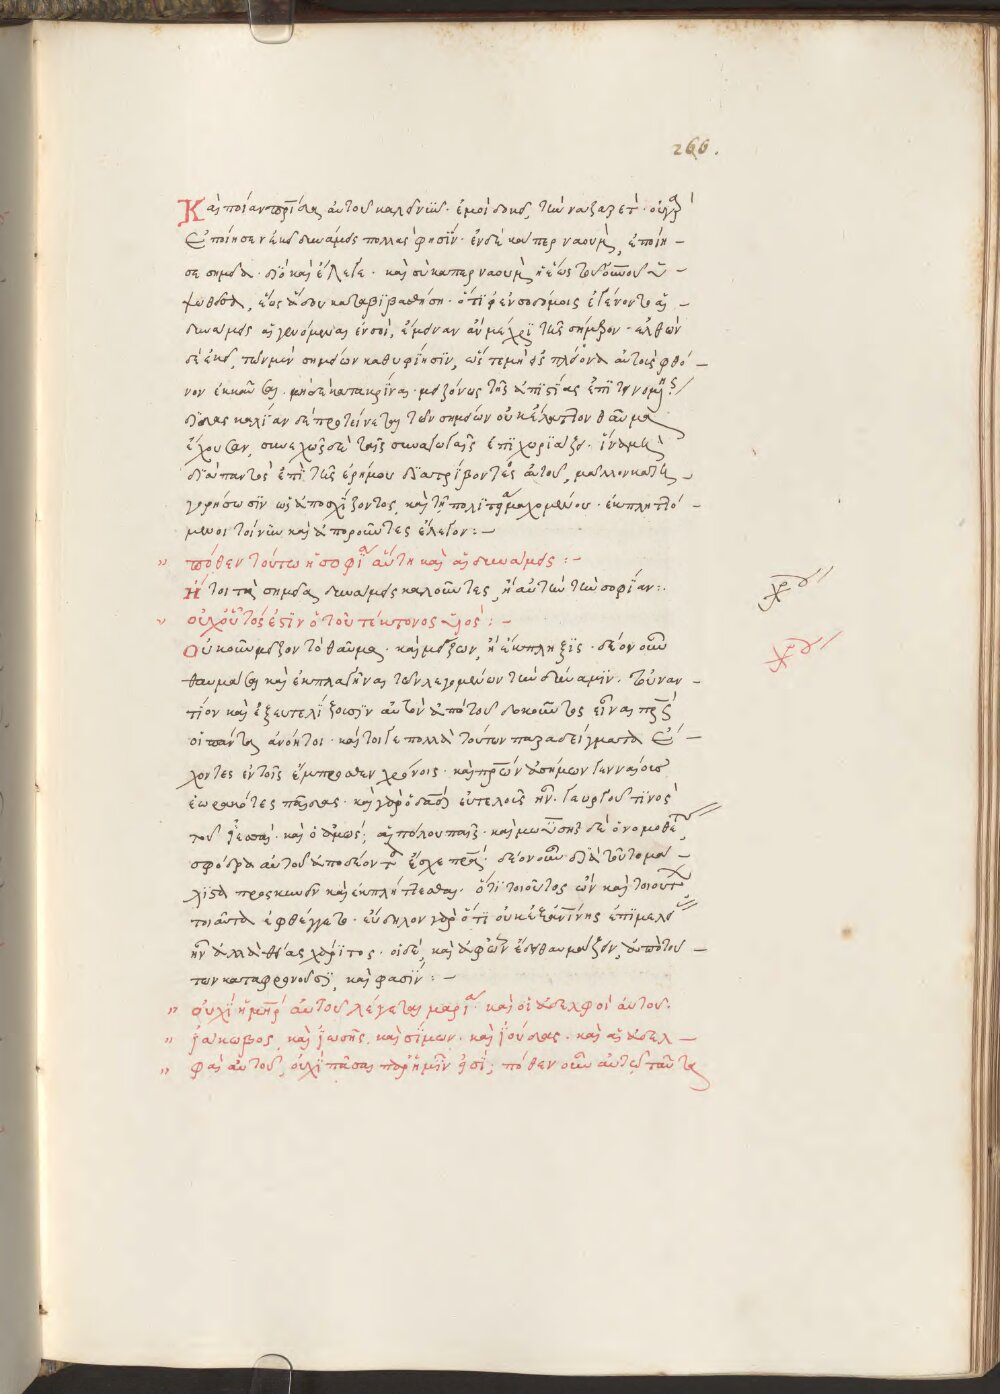 266.
Καὶ ποίαν πατρίδα αὐτοῦ καλεῖ νῦν· ἐμοὶ δοκεῖ, τὴν ναζαρέτ· οὐ γὰρ
ἐποίησεν ἐκεῖ δυνάμεις πολλὰς φησίν· ἐν δὲ καπερναοὺμ, ἐποίη-
σε σημεῖα· διὸ καὶ ἔλεγε· καὶ σὺ καπερναοὺμ ἡ ἕως τοῦ οὐρανοῦ ὑ-
ψωθεῖσα, ἕως ἅδου καταβιβασθήσῃ· ὅτι εἰ ἐν σοδόμοις ἐγένοντο αἱ
δυνάμεις αἱ γενόμεναι ἐν σοὶ, ἔμειναν ἂν μέχρι τῆς σήμερον· ἐλθὼν
δὲ ἐκεῖ, τῶν μὲν σημείων καθυφίησιν, ὥστε μὴ εἰς πλείονα αὐτοὺς φθό-
νον ἐκκαῦσαι· μηδὲ κατακρῖναι μειζόνως τῆς ἀπιστίας ἐπιτεινομένης
διδασκαλίαν δὲ προτείνεται τῶν σημείων οὐκ ἔλαττον θαῦμα
ἔχουσαν, συνεχῶς δὲ ταῖς συναγωγαῖς ἐπιχωριάζει· ἵνα μὴ
διαπαντὸς ἐπὶ τῆς ἐρήμου διατρίβοντος αὐτοῦ, μᾶλλον κατη-
γορήσωσιν ὡς ἀποσχίζοντος, καὶ τῇ πολιτείᾳ μαχομένου· ἐκπληττό-
μενοι τοίνυν καὶ ἀποροῦντες ἔλεγον:-
" πόθεν τούτω ἡ σοφία αὕτη καὶ αἱ δυνάμεις:-
Ἤτοι τὰ σημεῖα δυνάμεις καλοῦντες, ἢ αὐτὴν τὴν σοφίαν:.
" οὐχ οὗτός ἐστιν ὁ τοῦ τέκτονος υἱός:-
Οὐκοῦν μεῖζον τὸ θαῦμα· καὶ μείζων, ἡ ἔκπληξις· δέον οὖν
θαυμάσαι καὶ ἐκπλαγῆναι τῶν λεγομένων τὴν δύναμιν· τοὐναν-
τίον καὶ ἐξευτελίζουσιν αὐτὸν ἀπὸ τοῦ δοκοῦντος εἶναι πατρὸς
οἱ πάντα ἀνόητοι· καίτοιγε πολλὰ τούτων παραδείγματα ἔ-
χοντες ἐν τοῖς ἔμπροσθεν χρόνοις· καὶ πατέρων ἀσήμων γενναίους
ἑωρακότες παῖδας· καὶ γὰρ ὁ δαυὶδ εὐτελοῦς ἦν γεωργοῦ τινος
τοῦ ἰεσσαί· καὶ ὁ ἀμὼς, αἰπόλου παῖς· καὶ μωϋσῆς δὲ ὁ νομοθέτης,
σφόδρα αὐτοῦ ἀποδέοντα ἔσχε πατέρα· δέον οὖν διὰ τοῦτο μά-
λιστα προσκυνεῖν καὶ ἐκπλήττεσθαι, ὅτι τοιοῦτος ὢν καὶ τοιούτων
τοιαῦτα ἐφθέγγετο· εὔδηλον γὰρ ὅτι οὐκ ἐξ ἀνθρωπίνης ἐπιμελείας
ἦν ἀλλὰ θείας χάριτος· οἱ δὲ, καὶ ἀφ' ὧν ἔδει θαυμάζειν, ἀπὸ τού-
των καταφρονοῦσι, καὶ φασίν:-
" οὐχὶ ἡ μήτηρ αὐτοῦ λέγεται μαρία· καὶ οἱ ἀδελφοὶ αὐτοῦ.
" ἰάκωβος, καὶ ἰωσῆς, καὶ σίμων· καὶ ἰούδας· καὶ αἱ ἀδελ-
" φαὶ αὐτοῦ, οὐχὶ πᾶσαι παρ' ἡμῖν εἰσί; πόθεν οὖν αὐτῶ ταῦτα